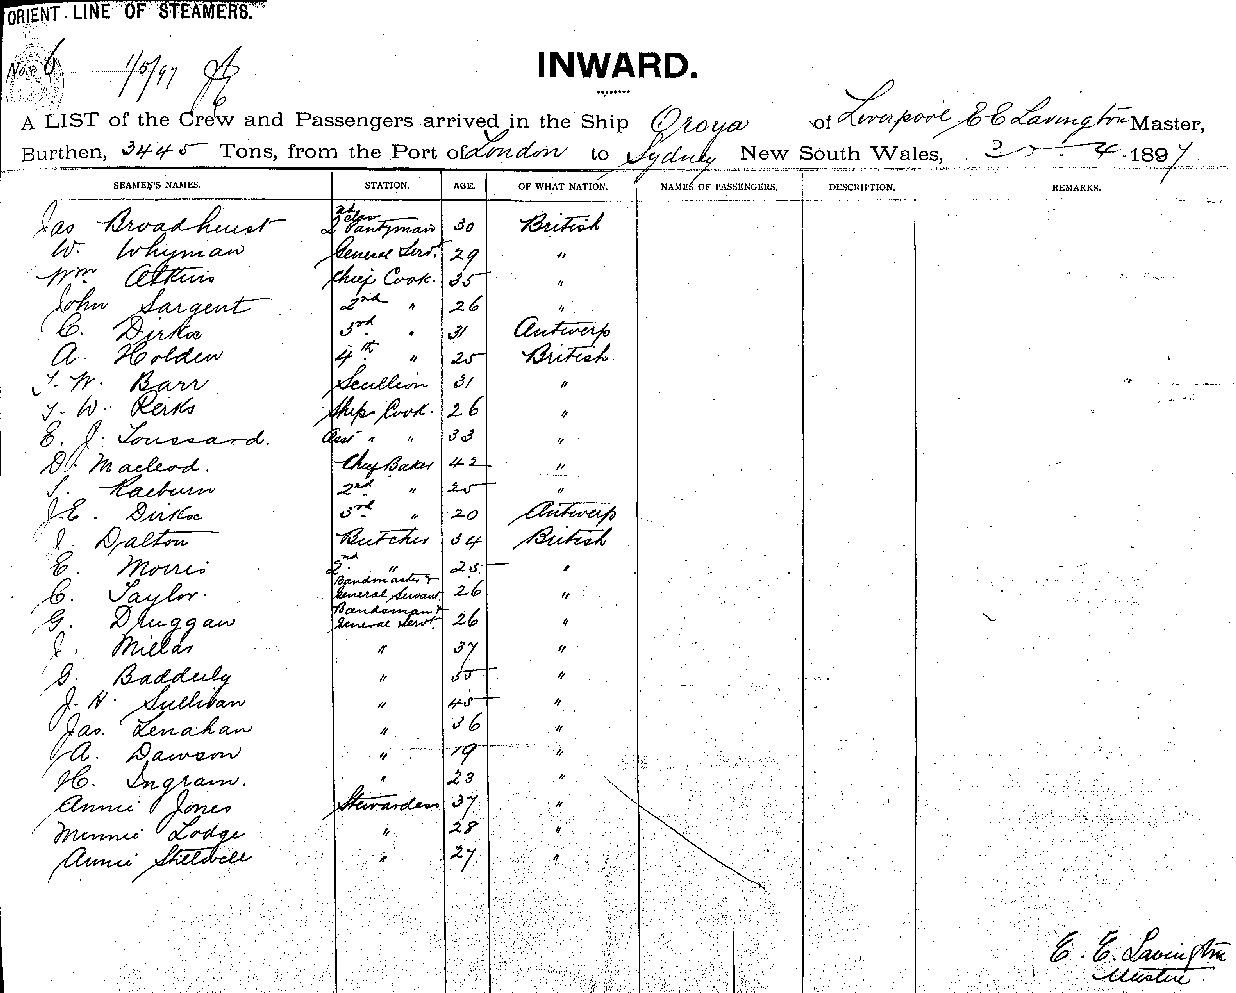 ORIENT LINE OF STEAMERS.
No. 6 1/5/97
INWARD.
A LIST of the Crew and Passengers arrived in the Ship Oroya of Liverpool E E Lavington Master,
Burthen, 3445 Tons, from the Port of London to Sydney New South Wales, 4. 1897
SEAMEN'S NAMES. STATION. AGE. OF WHAT NATION. NAMES OF PASSENGERS. DESCRIPTION. REMARKS.
Jas Broadhurst 2nd clas Pantryman 30 British
W. Whyman General Servt. 29 "
Wm Atkins Chief Cook. 35 "
John Sargent 2nd " 26 "
C. Dirkx 3rd " 31 Antwerp
A. Holden 4th " 25 British
T. W. Barr Scullion 31 "
T. W. Perks Ship Cook. 26 "
E. J. Toussard. Asst " " 33 "
D. Macleod. Chief Baker 42 "
S. Raeburn 2nd " 25 "
J. E. Dirkx 3rd " 20 Antwerp
J. Dalton Butcher 34 British
E. Morris 2nd " 25 "
C. Taylor. Bandmaster & General Servant 26 "
G. Druggan Bandsman & General Servt. 26 "
J. Millar " 37 "
G. Badderly " 55 "
J. H. Sullivan " 45 "
Jas. Lenahan " 36 "
A. Dawson " 19 "
H. Ingram. " 23 "
Annie Jones Stewardess 37 "
Minnie Lodge " 28 "
Annie Stilwell " 27 "
E. E. Lavington
Master